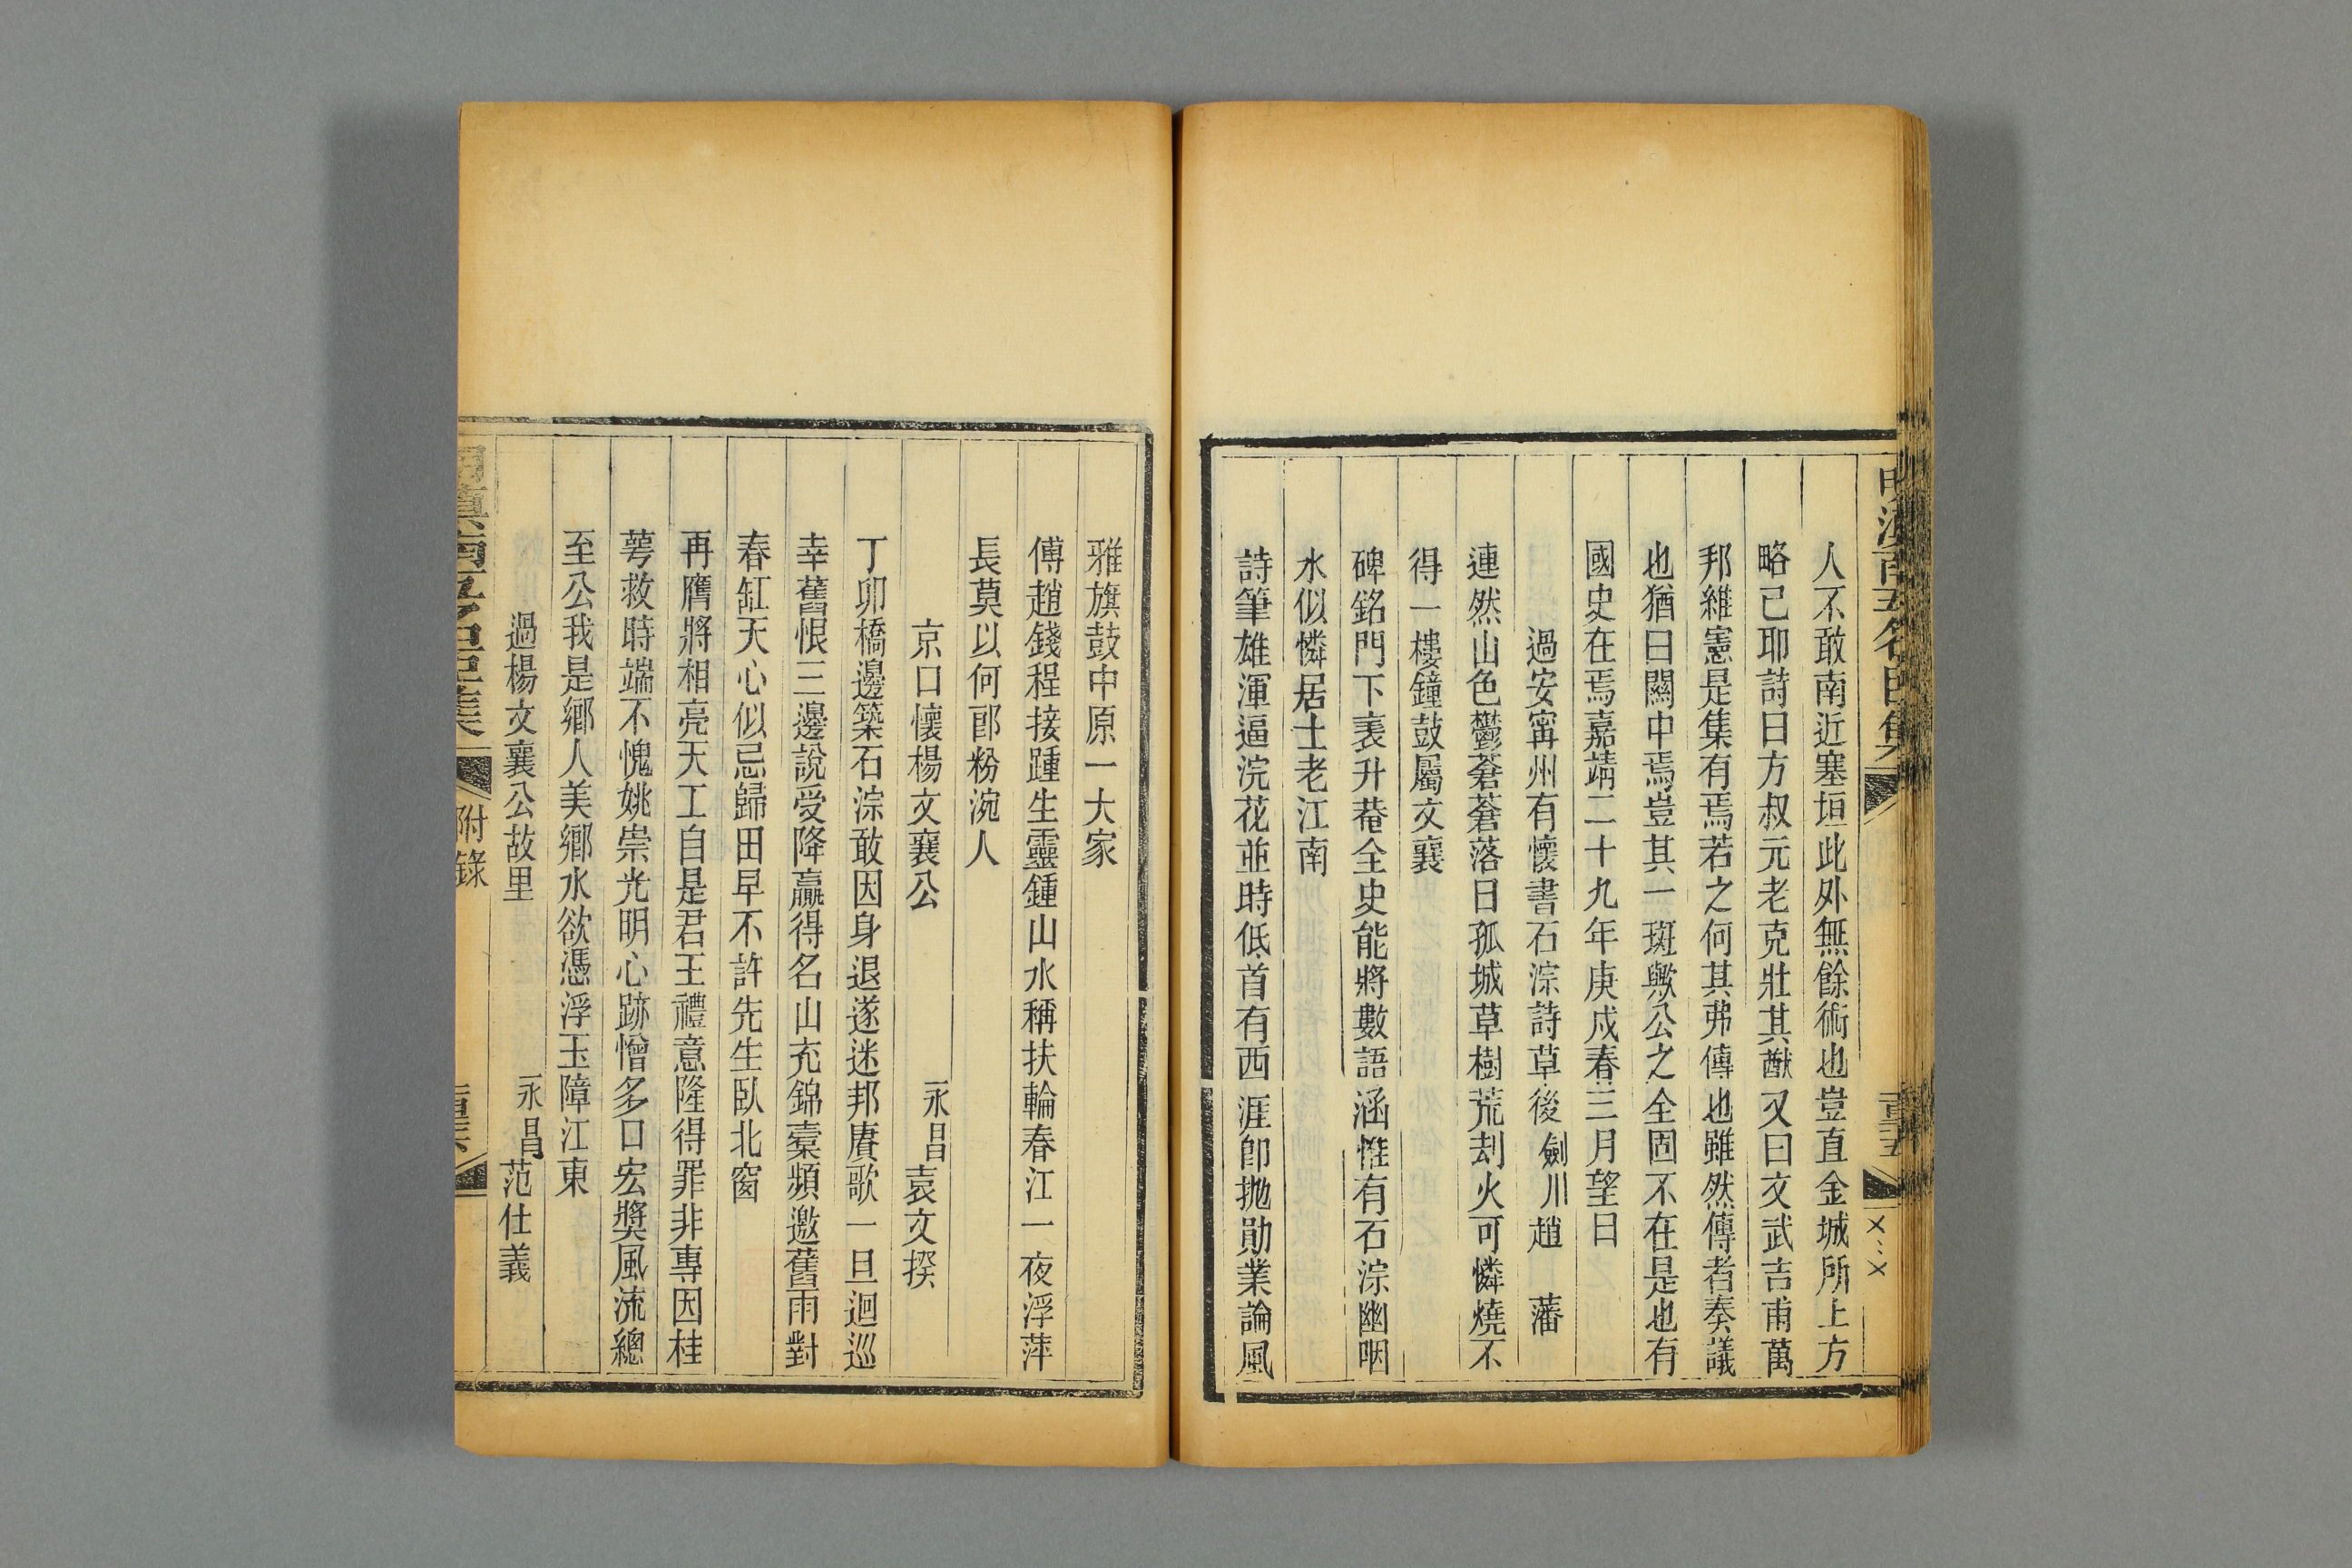 人不敢南近塞垣此外無餘術也豈直金城所上方
略已耶詩曰方叔元老克壯其猷又曰文武吉甫萬
邦維憲是集有焉若之何其弗傳也雖然傳者奏議
也猶曰關中焉豈其一斑歟公之全固不在是也有
國史在焉嘉靖二十九年庚戌春三月望日
過安甯州有懷書石淙詩草後 劍川趙 藩
連然山色鬱蒼蒼落日孤城草樹荒刦火可憐燒不
得一樓鐘鼓屬文襄
碑銘門下表升菴全史能將數語涵惟有石淙幽咽
水似憐居士老江南
詩筆雄渾逼浣花並時低首有西涯卽拋勛業論風
雅旗鼓中原一大家
傅趙錢程接踵生靈鍾山水稱扶輪春江一夜浮萍
長莫以何郎粉涴人
京口懷楊文襄公 永昌袁文揆
丁卯橋邊築石淙敢因身退遂迷邦賡歌一旦迴巡
幸舊恨三邊說受降贏得名山充錦槖頻邀舊雨對
春缸天心似忌歸田早不許先生臥北窗
再膺將相亮天工自是君王禮意隆得罪非專因桂
萼救時端不愧姚崇光明心跡憎多口宏獎風流總
至公我是鄉人美鄉水欲憑浮玉障江東
過楊文襄公故里 永昌范仕義
附錄